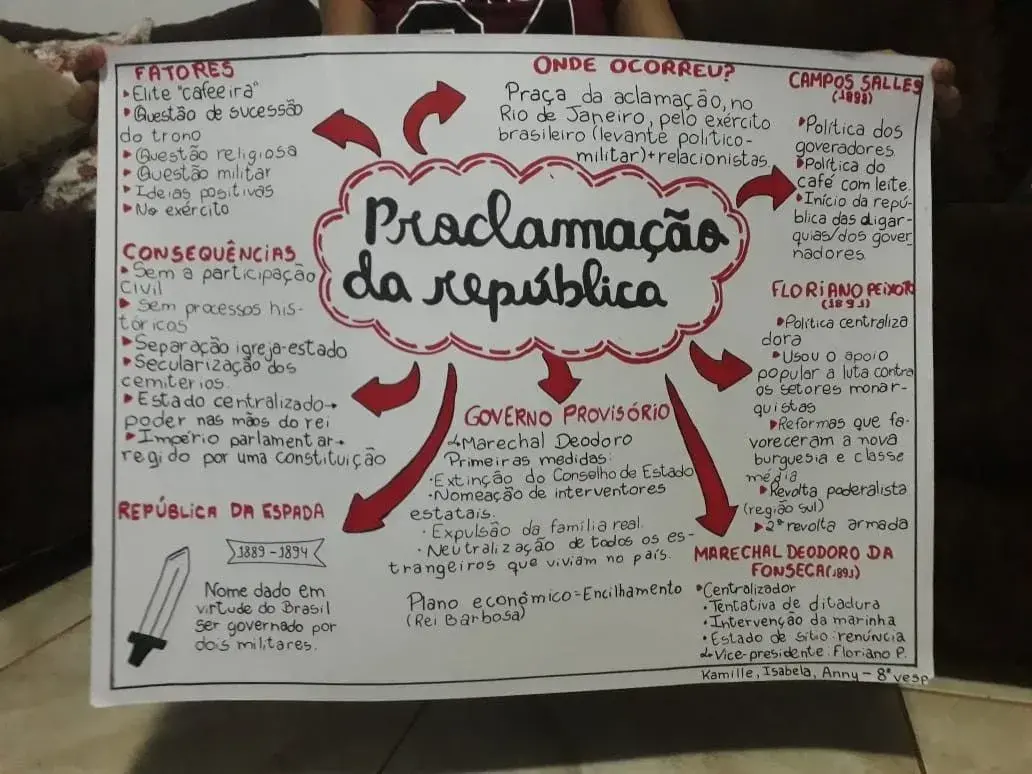 FATORES
Elite "cafeeira"
Questão de sucessão
do trono
Questão religiosa
Questão militar
Ideias positivas
No exército
CONSEQUÊNCIAS
Sem a participação
Civil
Sem processos his-
tóricos
Separação igreja-estado
Secularização dos
cemiterios.
Estado centralizado→
poder nas mãos do rei
Império parlamentar→
regido por uma constituição
REPÚBLICA DA ESPADA
1889-1894
Nome dado em
virtude do Brasil
ser governado por
dois militares.
ONDE OCORREU?
Praça da aclamação, no
Rio de Janeiro, pelo exército
brasileiro (levante político-
militar)+relacionistas
Proclamação
da república
GOVERNO PROVISÓRIO
↳Marechal Deodoro
Primeiras medidas:
·Extinção do Conselho de Estado
·Nomeação de interventores
estatais.
·Expulsão da família real.
·Neutralização de todos os es-
trangeiros que viviam no país.
Plano econômico=Encilhamento
(Rei Barbosa)
CAMPOS SALLES
(1898)
Política dos
goveradores.
Política do
café com leite.
Início da repú-
blica das oligar-
quias/dos gover
nadores.
FLORIANO PEIXOTO
(1891)
Política centraliza
dora
Usou o apoio
popular a luta contra
os setores monar-
quistas
Reformas que fa-
voreceram a nova
burguesia e classe
média
Revolta paderalista
(região sul)
2ª revolta armada
MARECHAL DEODORO DA
FONSECA(1891)
Centralizador
·Tentativa de ditadura
·Intervenção da marinha
·Estado de sítio:renúncia
↳Vice-presidente:Floriano P.
Kamille, Isabela, Anny - 8º vesp